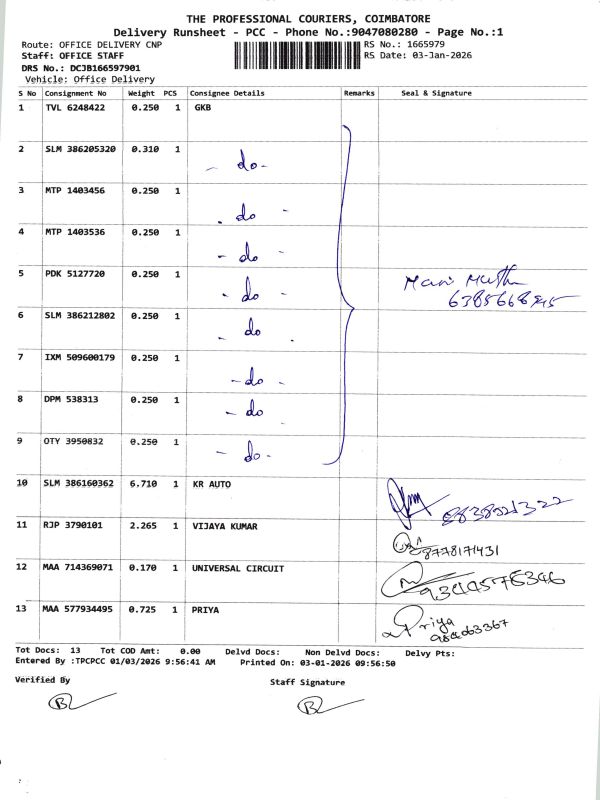 THE PROFESSIONAL COURIERS, COIMBATORE
Delivery Runsheet - PCC - Phone No.:9047080280 - Page No.:1
Route: OFFICE DELIVERY CNP
RS No.: 1665979
Staff: OFFICE STAFF
RS Date: 03-Jan-2026
DRS No.: DCJB166597901
Vehicle: Office Delivery
S No Consignment No Weight PCS Consignee Details Remarks Seal & Signature
1 TVL 6248422 0.250 1 GKB
2 SLM 386205320 0.310 1 - do-
3 MTP 1403456 0.250 1 - do -
4 MTP 1403536 0.250 1 - do
5 PDK 5127720 0.250 1 - do -
6 SLM 386212802 0.250 1 - do
7 IXM 509600179 0.250 1 - do -
8 DPM 538313 0.250 1 - do -
9 OTY 3950832 0.250 1 - do -
10 SLM 386160362 6.710 1 KR AUTO
11 RJP 3790101 2.265 1 VIJAYA KUMAR 8778171431
12 MAA 714369071 0.170 1 UNIVERSAL CIRCUIT
13 MAA 577934495 0.725 1 PRIYA Priya
Tot Docs: 13 Tot COD Amt: 0.00 Delvd Docs: Non Delvd Docs: Delvy Pts:
Entered By :TPCPCC 01/03/2026 9:56:41 AM Printed On: 03-01-2026 09:56:50
Verified By Staff Signature